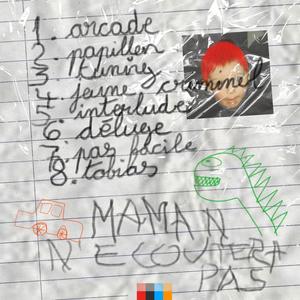 1. arcade
2. papillon
3. tuning
4. jeune criminel
5. interlude
6. déluge
7. pas facile
8. tobias
MAMAN
N'ECOUTERA
PAS